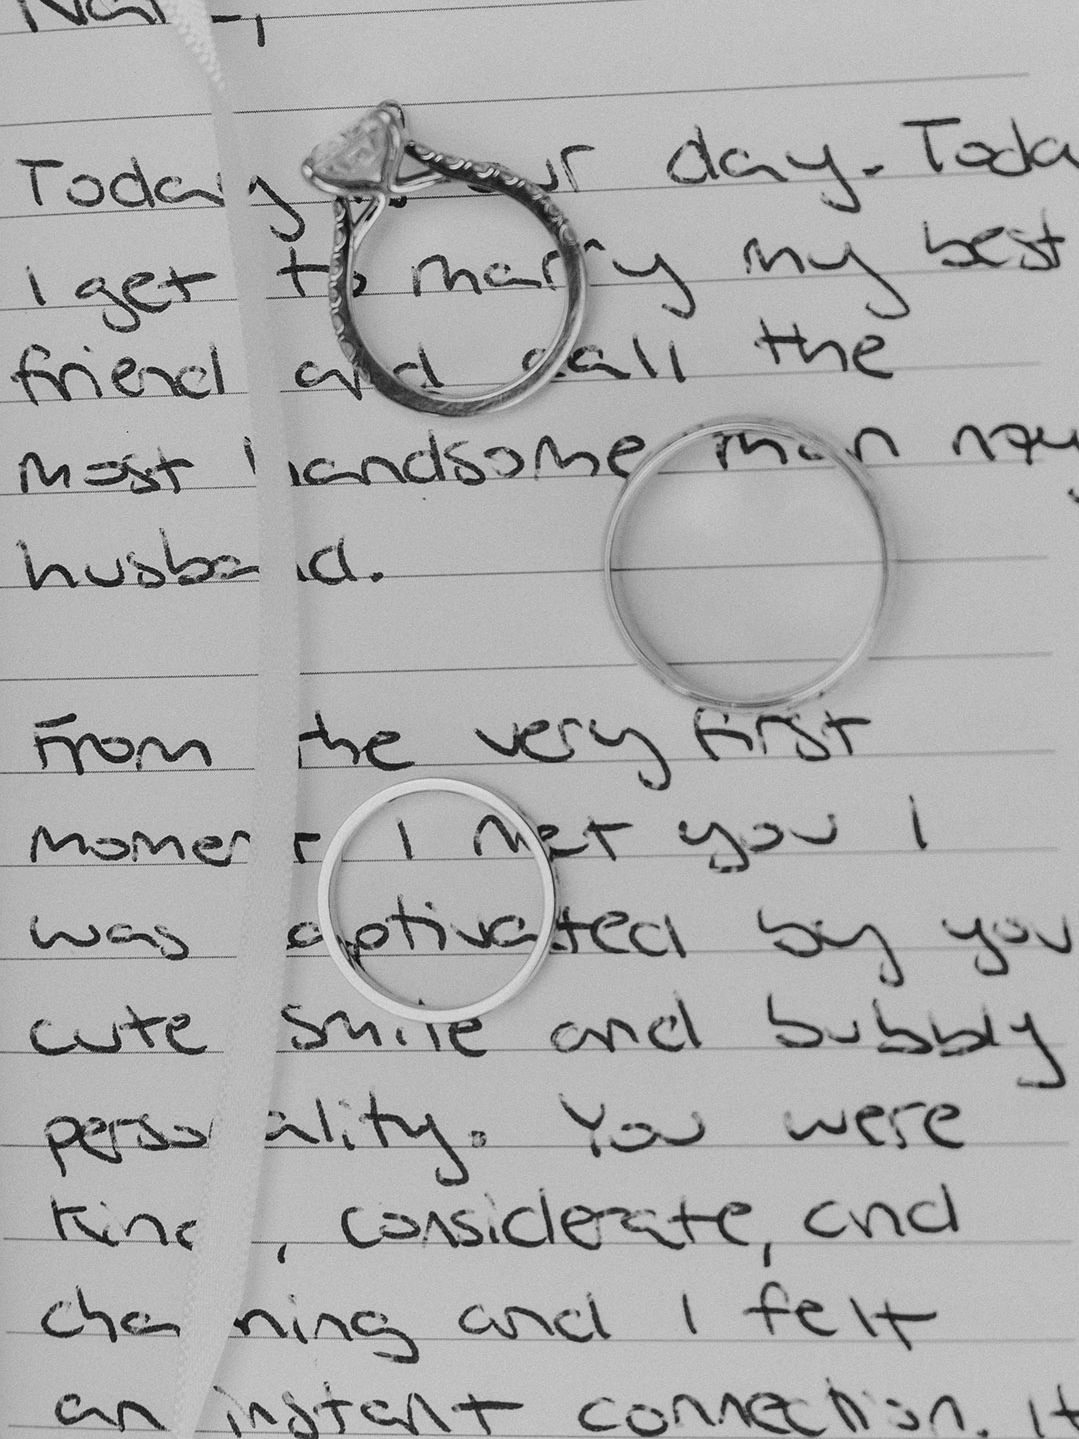 Today is our day. Today
I get to marry my best
friend and call the
most handsome man my
husband.
From the very first
moment I met you I
was captivated by your
cute smile and bubbly
personality. You were
kind, considerate, and
charming and I felt
an instant connection. It